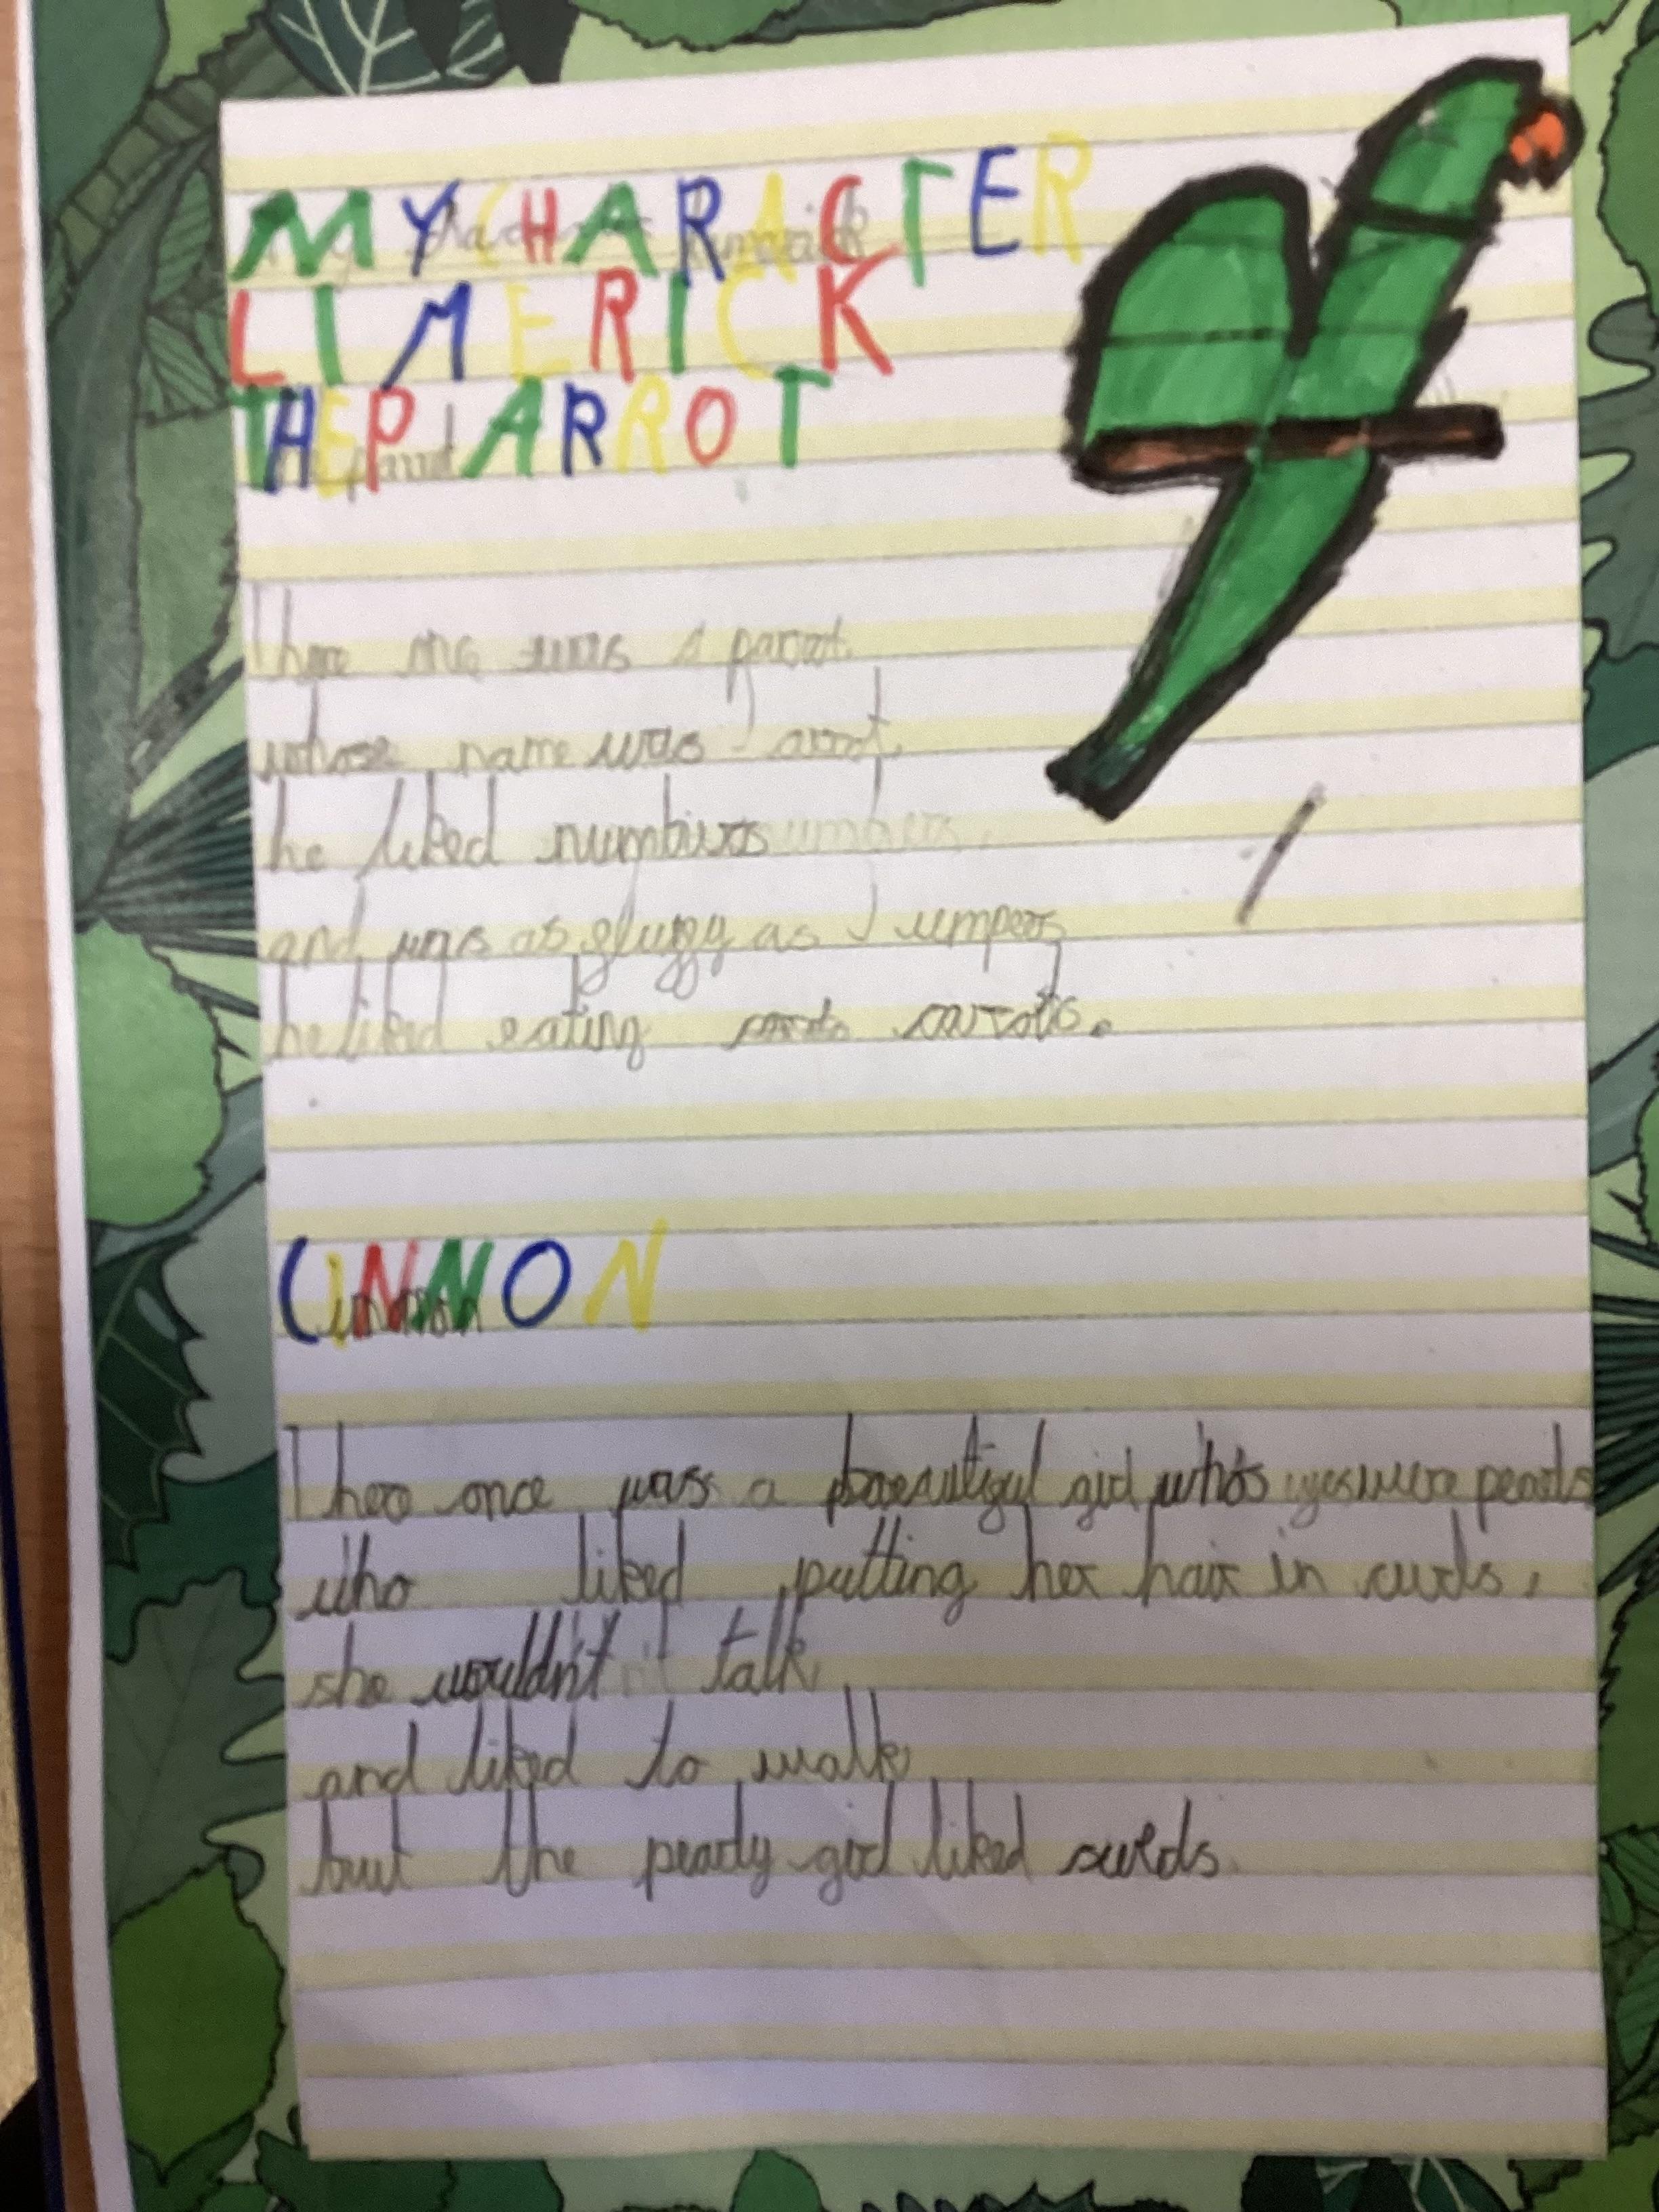 MY CHARACTER
LIMERICK
THE PARROT
There one was a parrot
whose name was Jarrot,
he liked numbers
and was as fluffy as Jumpers
he liked eating carrots.
CINNON
Cinnmon
There once was a beautiful girl whos eyes were pearls
who liked putting her hair in curls,
she wouldn't talk,
and liked to walk
but the pearly girl liked swirls.